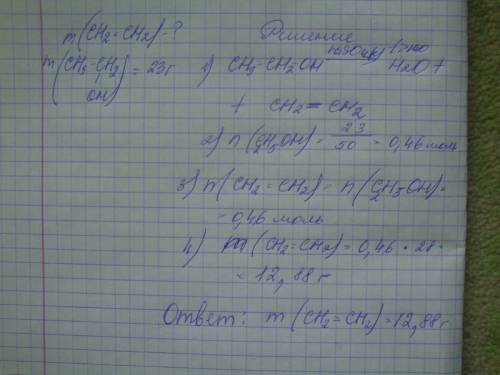 m(CH2=CH2)-?
Решение
m(CH3-CH2 = 23г
OH)
1) CH3-CH2OH H2SO4(к) t>140 H2O +
+ CH2=CH2
2) n(C2H5OH) = 23/50 = 0,46 моль
3) n(CH2=CH2) = n(C2H5OH) =
= 0,46 моль
4) m(CH2=CH2) = 0,46 · 28 =
= 12,88 г
Ответ: m(CH2=CH2) = 12,88 г